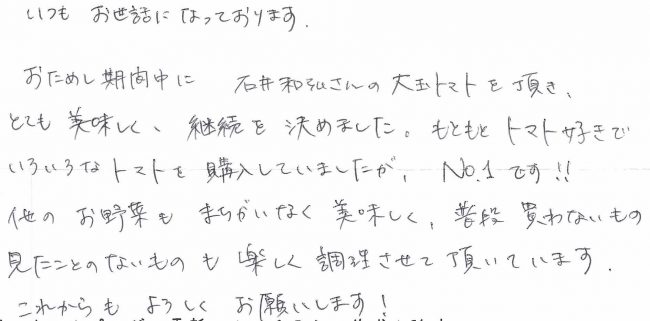 いつも お世話になっております.
おためし期間中に 石井和弘さんの大玉トマトを頂き、
とても美味しく、継続を決めました。もともとトマト好きで
いろいろなトマトを購入していましたが、No.1です!!
他のお野菜もまちがいなく美味しく、普段買わないもの
見たことのないものも楽しく調理させて頂いています.
これからも よろしく お願いします!